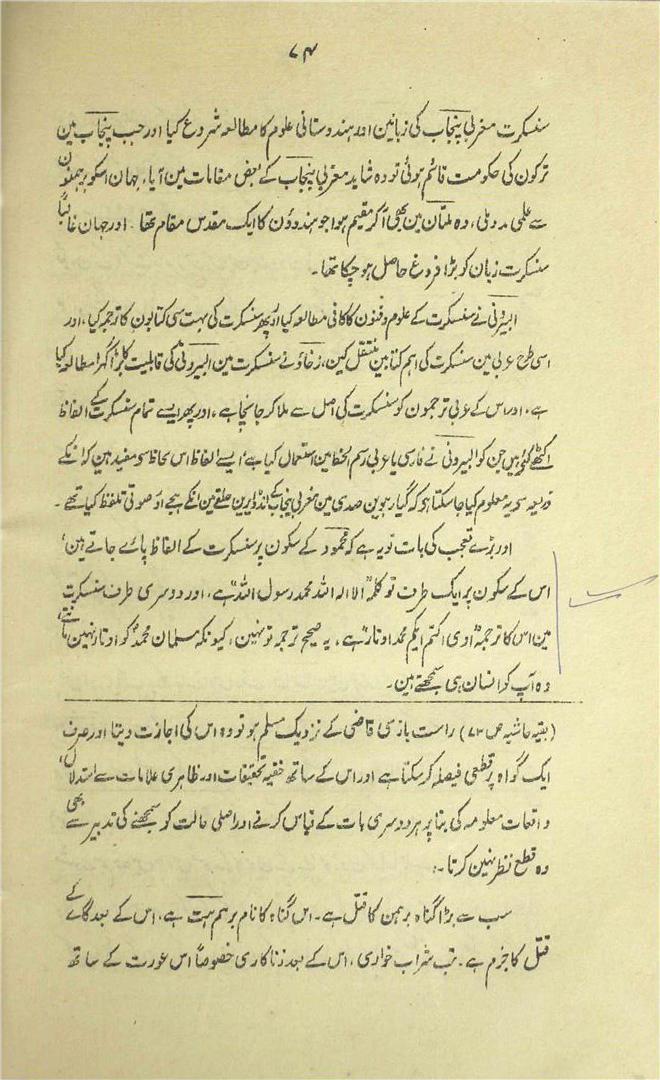 ۷۴
سنسکرت مغربی پنجاب کی زبانین اور ہندوستانی علوم کا مطالعہ شروع کیا اور جب پنجاب مین
ترکون کی حکومت قائم ہوئی تو وہ شاید مغربی پنجاب کے بعض مقامات مین آیا، جہان اسکو برہمنون
سے علمی مدد ملی، وہ ملتان مین بھی آکر مقیم ہوا جو ہندوؤن کا ایک مقدس مقام تھا۔ اور جہان غالباً
سنسکرت زبان کو بڑا فروغ حاصل ہو چکا تھا۔
البیرونی نے سنسکرت کے علوم و فنون کا کافی مطالعہ کیا اور پھر سنسکرت کی بہت سی کتابون کا ترجمہ کیا، اور
اسی طرح عربی مین سنسکرت کی اہم کتابین منتقل کین، زخاؤ نے سنسکرت مین البیرونی کی قابلیت کا بڑا گہرا مطالعہ کیا
ہے، اور اس کے عربی ترجمون کو سنسکرت کی اصل سے ملا کر جانچا ہے، اور پھر ایسے تمام سنسکرت کے الفاظ
اکٹھے کئے ہین جن کو البیرونی نے فارسی یا عربی رسم الخط مین استعمال کیا ہے، ایسے الفاظ اس لحاظ سے مفید ہین کہ انکے
ذریعہ سے یہ معلوم کیا جا سکتا ہے کہ گیارہوین صدی مین مغربی پنجاب کے انڈو ایرین حلقے مین انکے ہجے اور صوتی تلفظ کیا تھے۔
اور بڑے تعجب کی بات تو یہ ہے کہ محمود کے سکون پر سنسکرت کے الفاظ پائے جاتے ہین،
اس کے سکون پر ایک طرف تو کلمہ "لا الہ الا اللہ محمد رسول اللہ" ہے، اور دوسری طرف سنسکرت
مین اس کا ترجمہ "اوی اکتم ایکم محمد اوتار" ہے، یہ صحیح ترجمہ تو نہین، کیونکہ مسلمان محمدؐ کو اوتار نہین مانتے،
وہ آپ کو انسان ہی سمجھتے ہین۔
(بقیہ حاشیہ ص ۷۳) راست بازی قاضی کے نزدیک مسلم ہو تو وہ اس کی اجازت دیتا اور صرف
ایک گواہ پر قطعی فیصلہ کر سکتا ہے اور اس کے ساتھ خفیہ تحقیقات اور ظاہری علامات سے استدلال،
واقعات معلومہ کی بنا پر ہر دوسری بات کے قیاس کرنے اور اصلی حالت کو سمجھنے کی تدبیر سے بھی
وہ قطع نظر نہین کرتا۔:
سب سے بڑا گناہ برہمن کا قتل ہے۔ اس گناہ کا نام برہم ہت ہے، اس کے بعد گائے کے
قتل کا جرم ہے۔ تب شراب خواری، اس کے بعد زناکاری خصوصاً اس عورت کے ساتھ